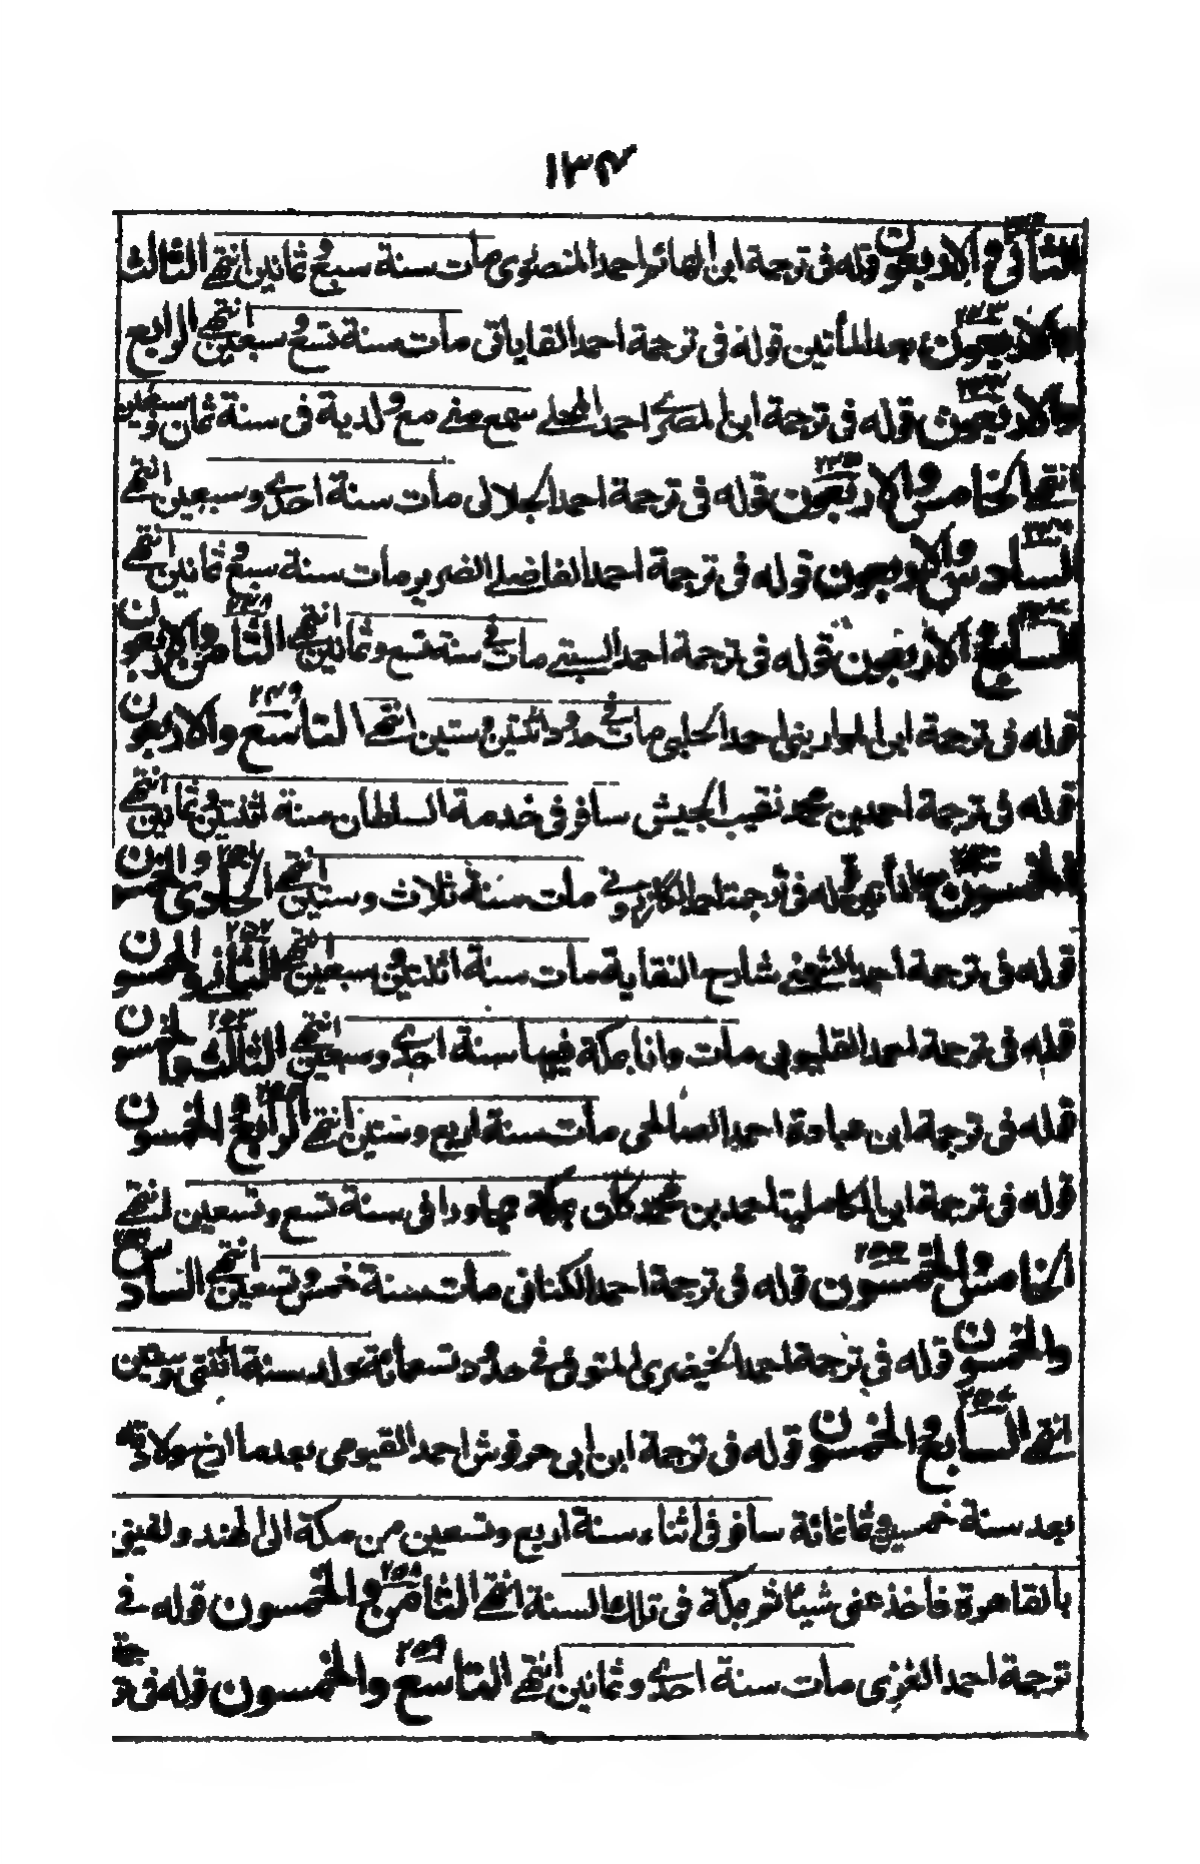 ١٣٤
الثاني والاربعون قوله في ترجمة ابن الهائم احمد المنصوري مات سنة سبع وثمانين انتهى الثالث
والاربعون بعد المأتين قوله في ترجمة احمد القاياتي مات سنة تسع وسبعين انتهى الرابع
والاربعون قوله في ترجمة ابن المصري احمد المحلي سمع مني مع ولديه في سنة ثمان وتسعين
انتهى الخامس والاربعون قوله في ترجمة احمد الجلالي مات سنة احدى وسبعين انتهى
السادس والاربعون قوله في ترجمة احمد الفاضلي الضرير مات سنة سبع وثمانين انتهى
السابع والاربعون قوله في ترجمة احمد البستي مات في سنة تسع وثمانين انتهى الثامن والاربعون
قوله في ترجمة ابن الموازيني احمد الحلبي مات في حدود اثنتين وستين انتهى التاسع والاربعون
قوله في ترجمة احمد بن محمد نقيب الجيش سافر في خدمة السلطان سنة اثنتين وثمانين انتهى
الخمسون بعد المأتين قوله في ترجمة احمد الكازروني مات سنة ثلاث وستين انتهى الحادي والخمسون
قوله في ترجمة احمد الشمني شارح النقاية مات سنة اثنتين وسبعين انتهى الثاني والخمسون
قوله في ترجمة احمد القليوبي مات وانا بمكة فيها سنة احدى وسبعين انتهى الثالث والخمسون
قوله في ترجمة ابن عبادة احمد الصالحي مات سنة اربع وستين انتهى الرابع والخمسون
قوله في ترجمة ابن الكاملية احمد بن محمد كان بمكة مجاورا في سنة تسع وتسعين انتهى
الخامس والخمسون قوله في ترجمة احمد الكناني مات سنة خمس وتسعين انتهى السادس
والخمسون قوله في ترجمة احمد الخيضري المتوفى في حدود تسعمائة مولد سنة اثنتي وستين
انتهى السابع والخمسون قوله في ترجمة ابن ابي حرفوش احمد الفيومي بعد ما ارخ مولده
بعد سنة خمسين وثمانمائة سافر في اثناء سنة اربع وتسعين من مكة الى الهند ولقيني
بالقاهرة فاخذ عني شيئا ثم بمكة في تلك السنة انتهى الثامن والخمسون قوله في
ترجمة احمد الغزي مات سنة احدى وثمانين انتهى التاسع والخمسون قوله في ترجمة